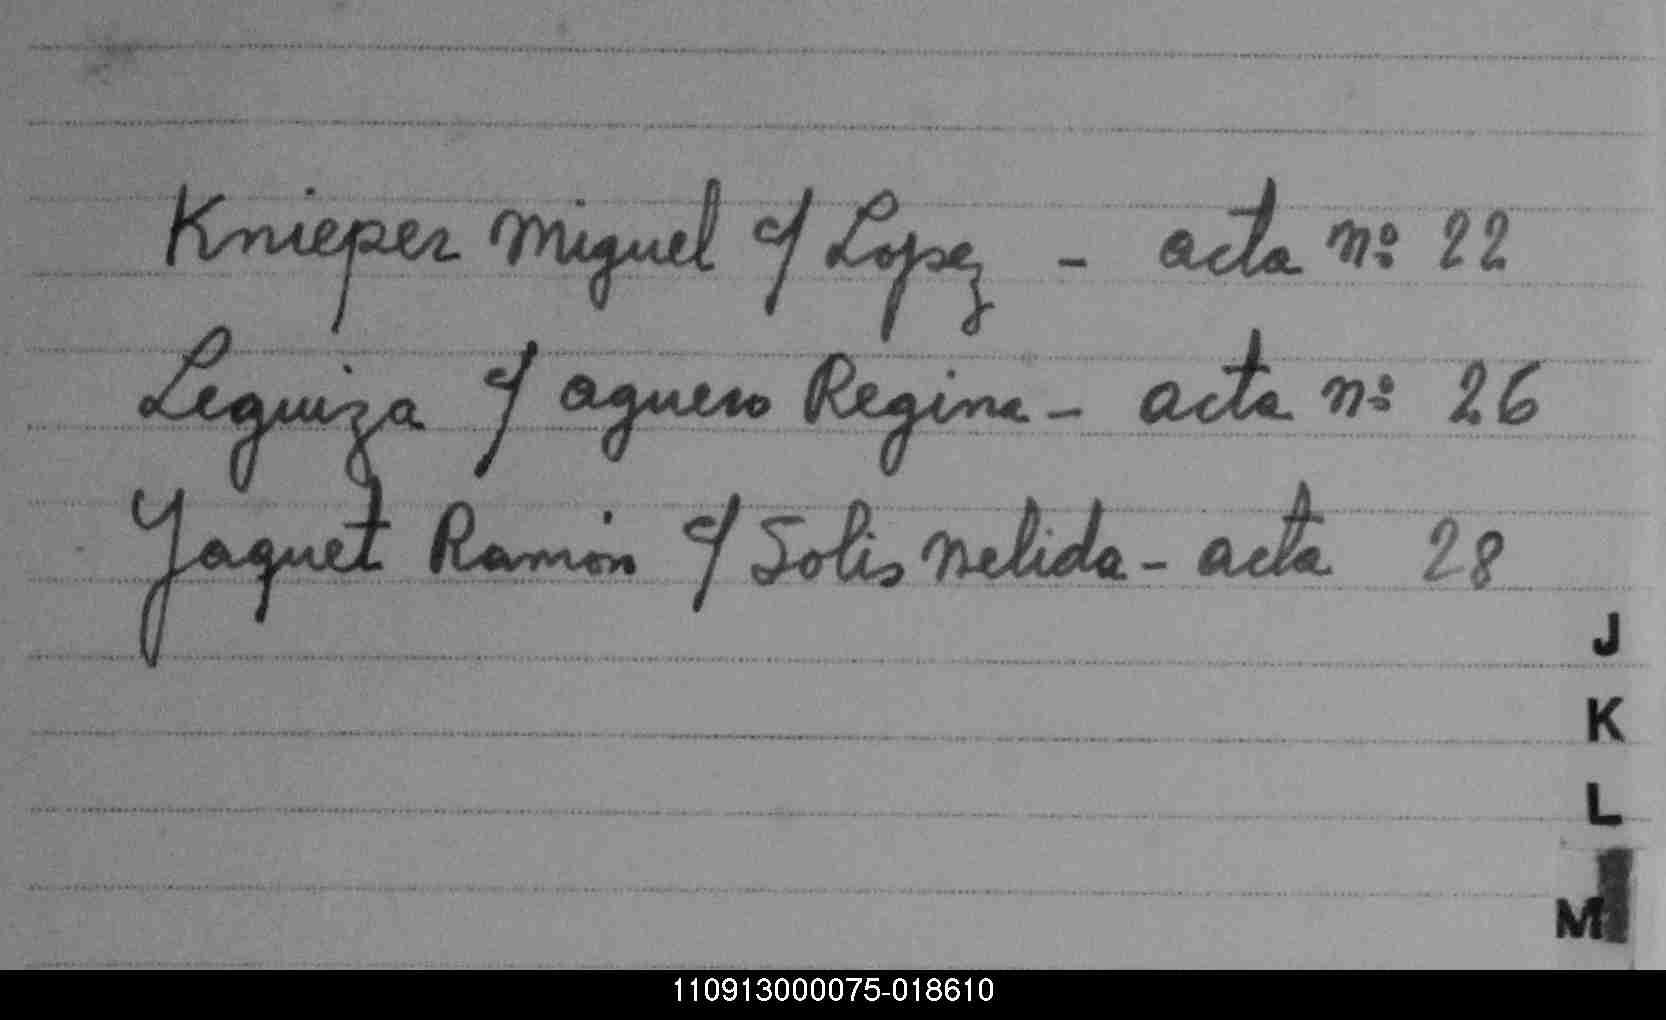 Knieper Miguel c/ Lopez - acta nº 22
Leguiza c/ aguero Regina - acta nº 26
Jaquet Ramón c/ Solis Nelida - acta 28
J
K
L
M
110913000075-018610